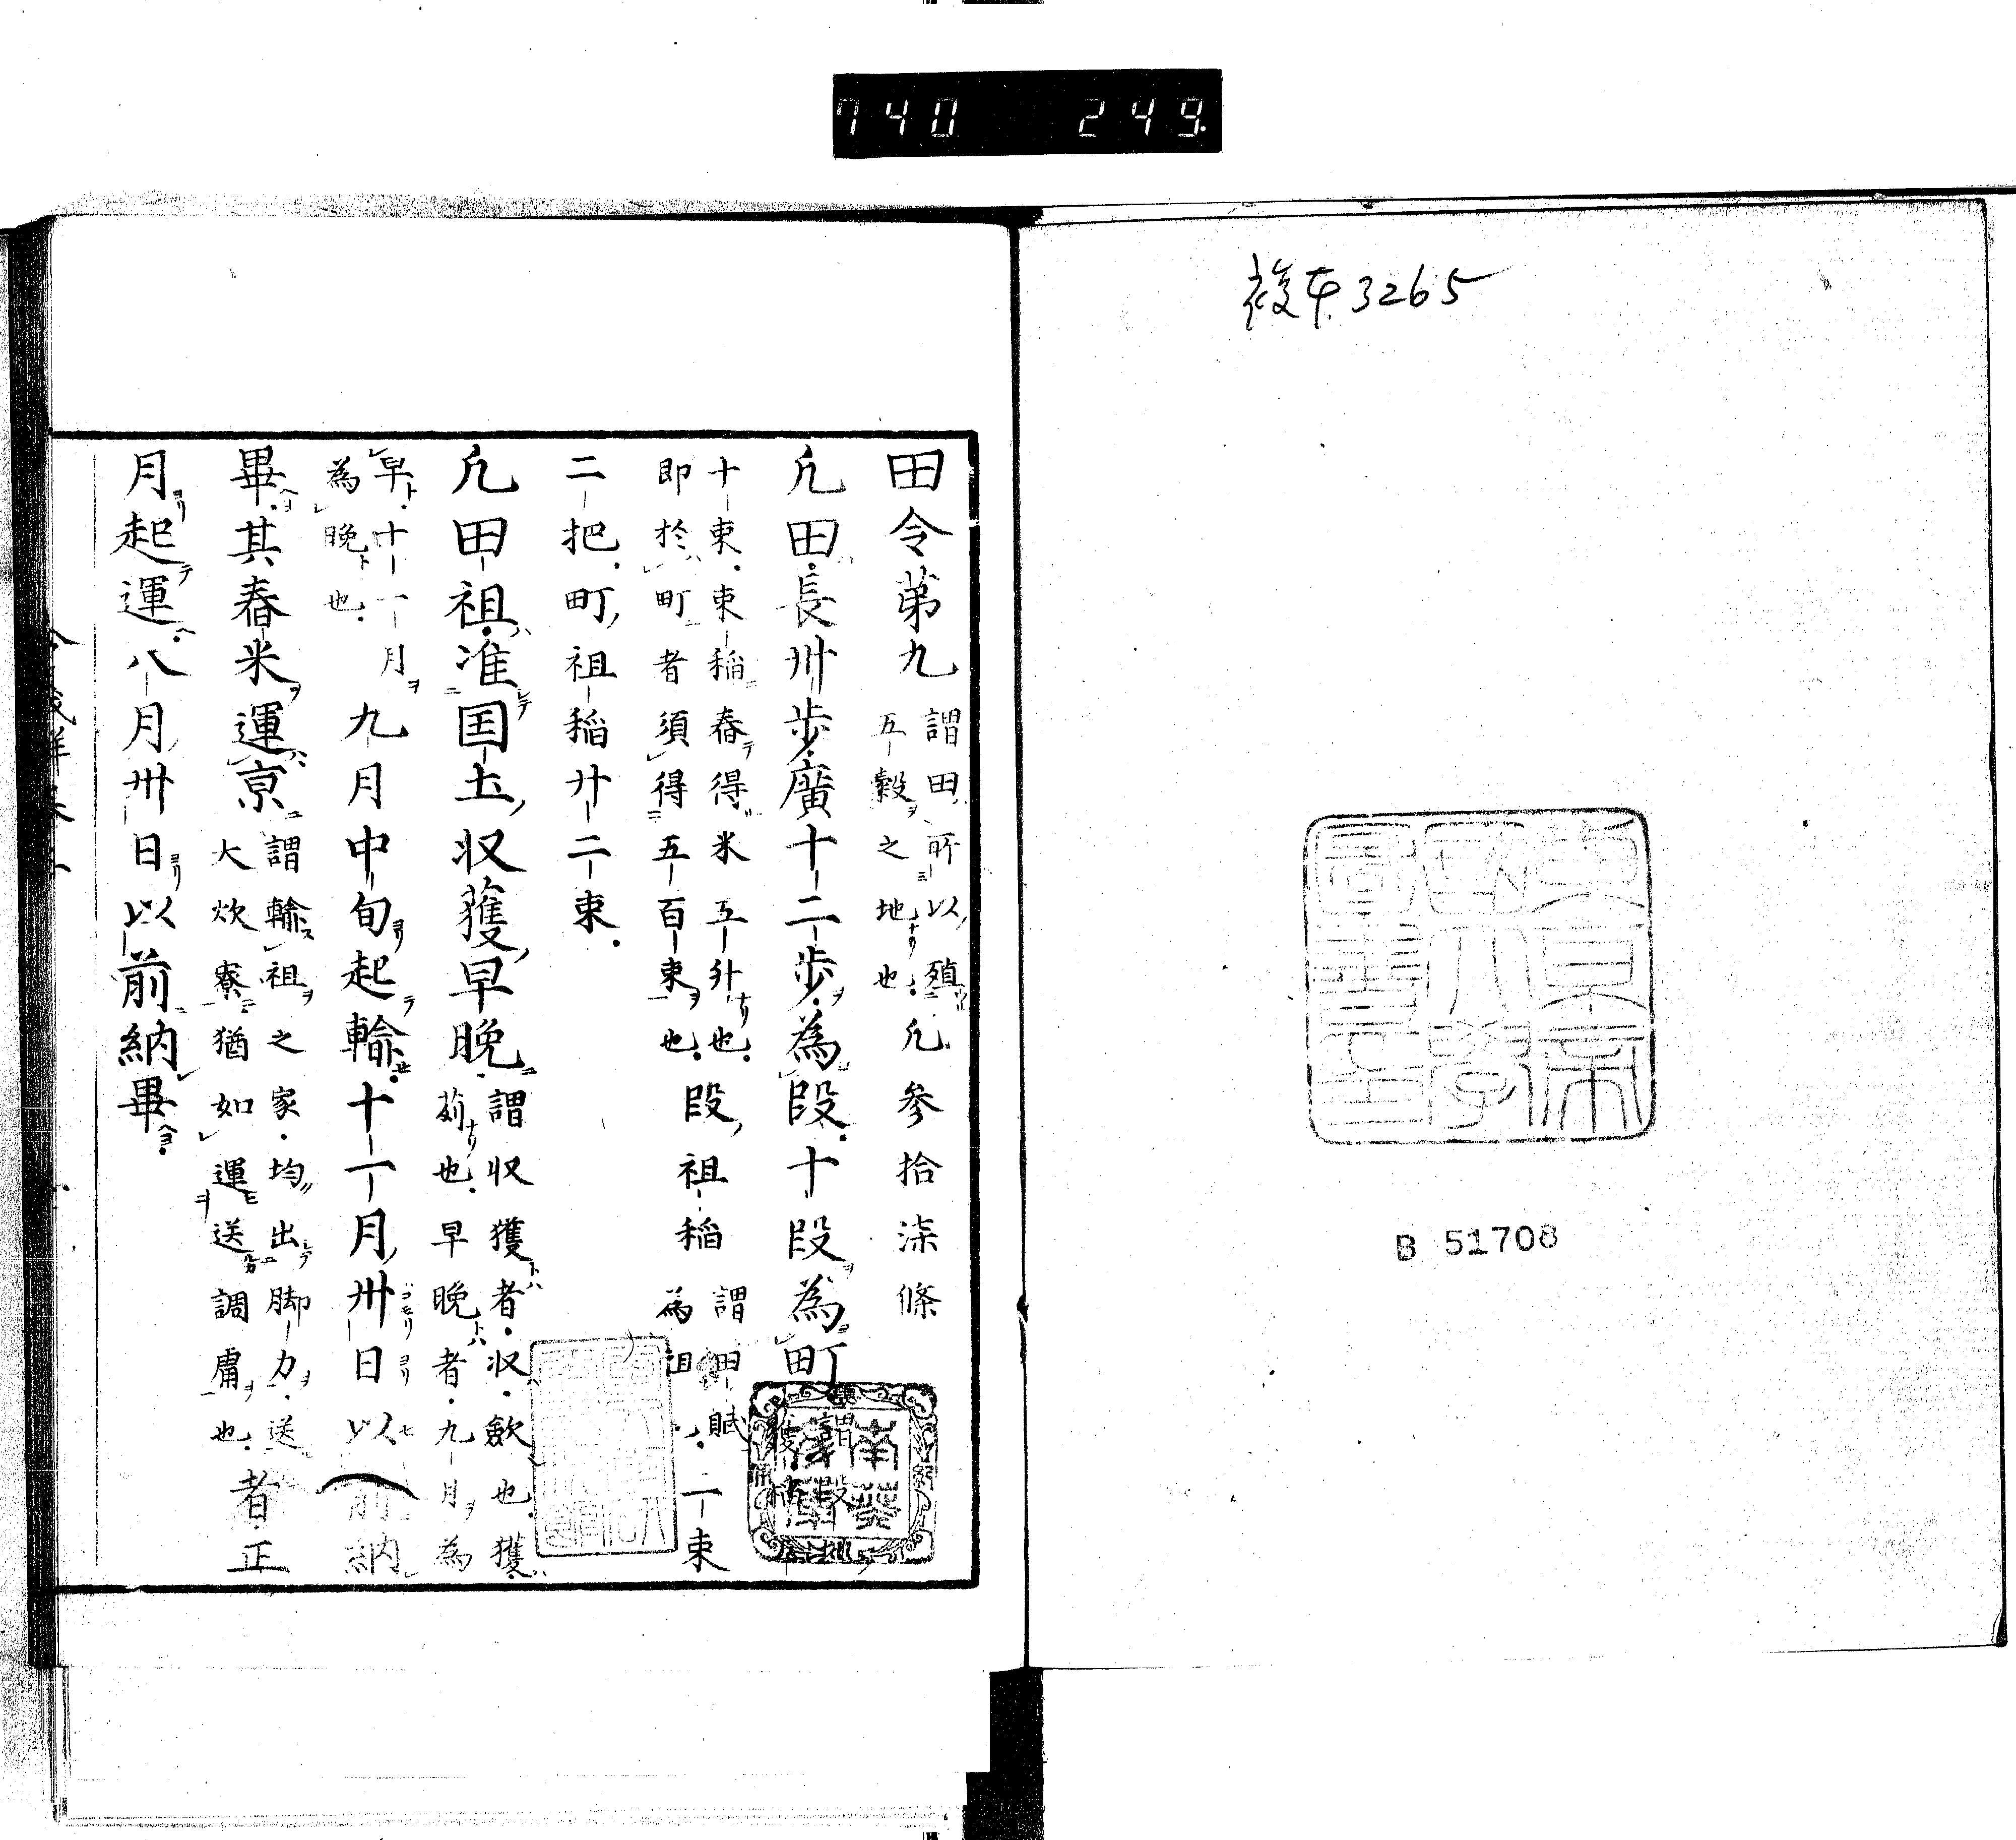 740 249.
複本3265
B 51708
東京帝
国大學
圖書印
田令第九 謂田所以殖五穀之地也 凢參拾柒條
凢田長卅歩廣十二歩為段十段為町 謂段
十束束稲舂得米五升也即於町者須得五百束也 段祖稲 謂田賦為祖 二束
二把町祖稲廿二束
凢田祖准国土収獲早晩 謂収獲者収歛也獲苅也早晩者九月為
早十一月為晩也 九月中旬起輸十一月卅日以前納
畢其舂米運京 謂輸祖之家均出脚力送大炊寮猶如運送調庸也 者正
月起運八月卅日以前納畢